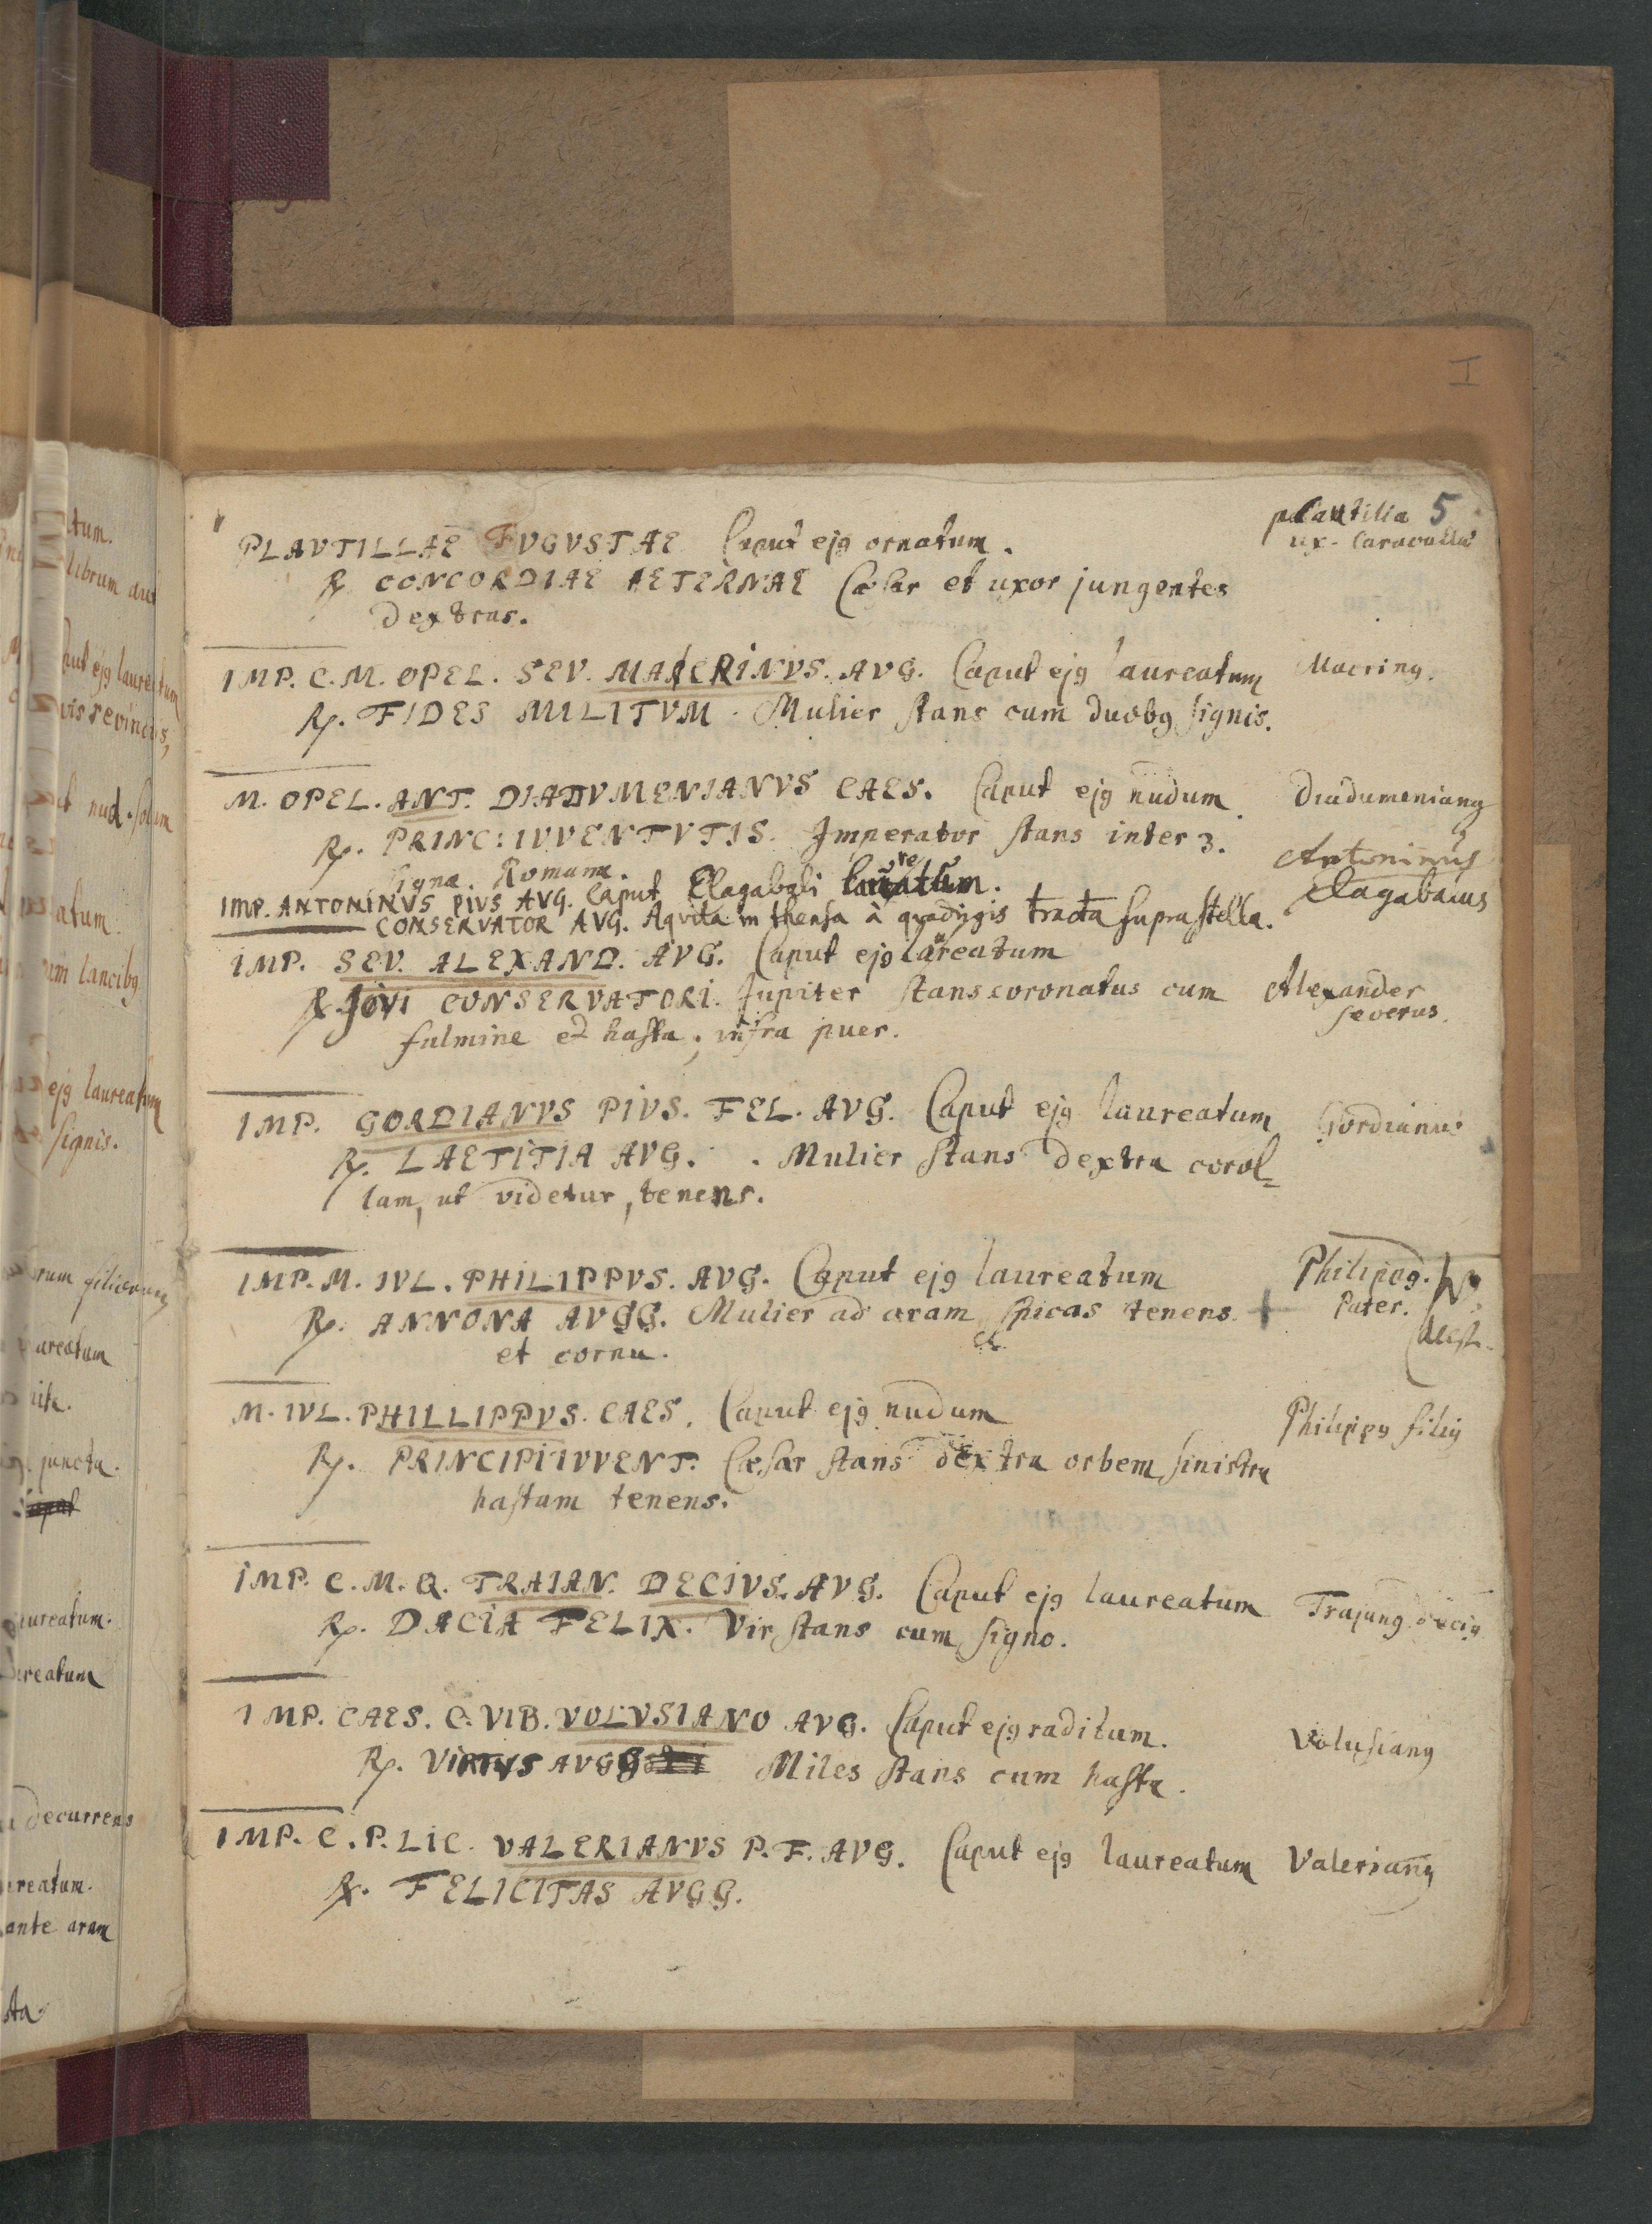 I
plautilla 5
ux. Caracallae
PLAVTILLAE FVGVSTAE Caput ejꝯ ornatum.
℞ CONCORDIAE AETERNAE Cæsar et uxor jungentes
dextras.
IMP. C. M. OPEL. SEV. MACRINVS. AVG. Caput ejꝯ laureatum Macrinꝯ.
℞. FIDES MILITVM. Mulier stans cum duobꝯ signis.
M. OPEL. ANT. DIADVMENIANVS CAES. Caput ejꝯ nudum Diadumenianꝯ
℞. PRINC: IVVENTVTIS. Imperator stans inter 3.
signa Romana. Antoninus
IMP. ANTONINVS PIVS AVG. Caput Elagabali laureatum. Elagabalus
CONSERVATOR AVG. Aqvila in thensa à qvadrigis tracta supra stella.
IMP. SEV. ALEXAND. AVG. Caput ejꝯ laureatum
℞ Jovi CONSERVATORI. Jupiter stans coronatus cum Alexander
fulmine et hasta; infra puer. severus.
IMP. GORDIANVS PIVS. FEL. AVG. Caput ejꝯ laureatum Gordianus
℞. LAETITIA AVG. . Mulier stans dextra corol=
lam, ut videtur, tenens.
IMP. M. IVL. PHILIPPVS. AVG. Caput ejꝯ laureatum Philippꝯ.
℞. ANNONA AVGG. Mulier ad aram spicas tenens + Pater.
et cornu. deest.
M. IVL. PHILLIPPVS. CAES. Caput ejꝯ nudum Philippꝯ filiꝯ
℞. PRINCIPI IVVENT. Cæsar stans dextra orbem sinistra
hastam tenens.
IMP. C. M. Q. TRAIAN. DECIVS. AVG. Caput ejꝯ laureatum Trajanꝯ deciꝯ
℞. DACIA FELIX. Vir stans cum signo.
IMP. CAES. C. VIB. VOLVSIANO AVG. Caput ejꝯ raditum. Volusianꝯ
℞. VIRTVS AVGG Miles stans cum hasta.
IMP. C. P. LIC. VALERIANVS P. F. AVG. Caput ejꝯ laureatum Valerianꝯ
℞. FELICITAS AVGG.